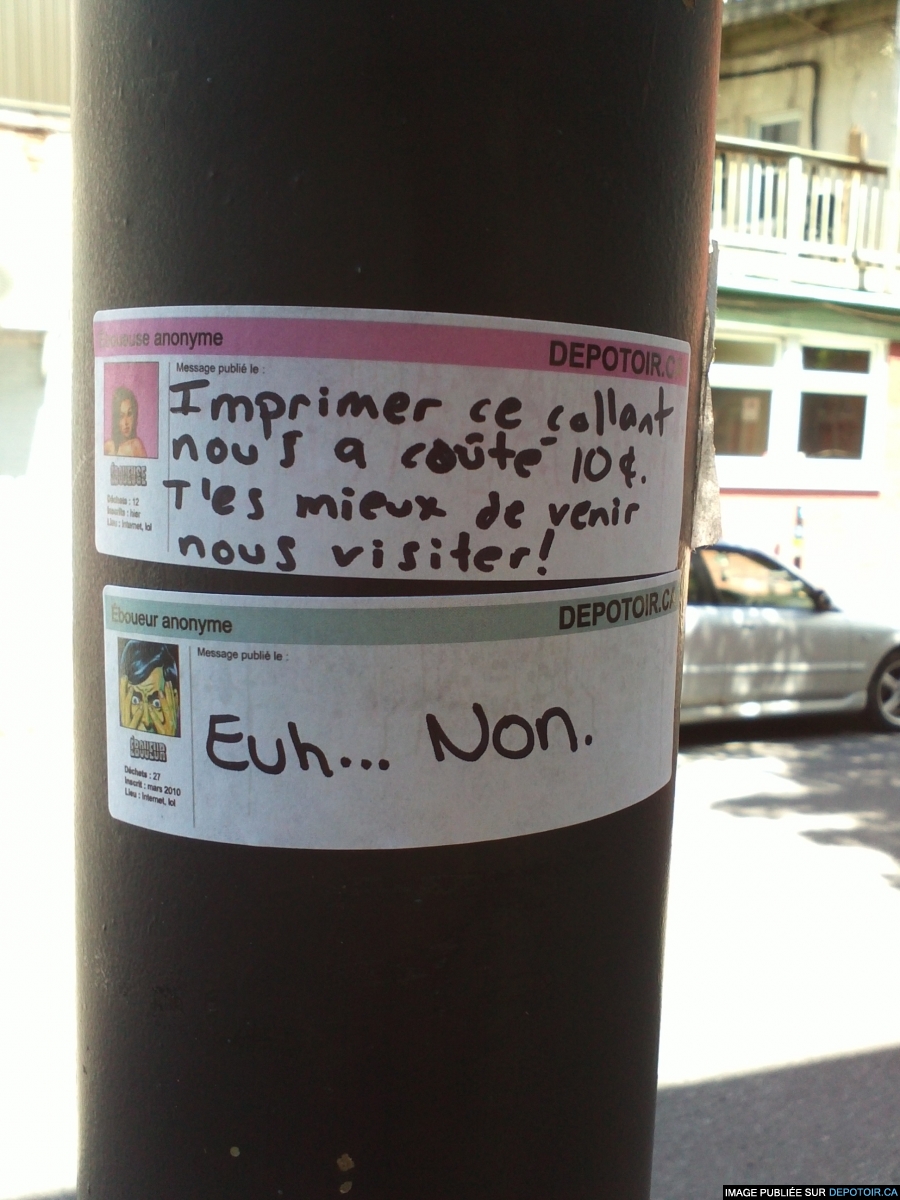 Éboueuse anonyme
DEPOTOIR.C
Message publié le :
Imprimer ce collant
nous a coûté 10¢.
T'es mieux de venir
nous visiter!
ÉBOUEUSE
Déchets : 12
Inscrit : hier
Lieu : Internet, lol
Éboueur anonyme
DEPOTOIR.CA
Message publié le :
Euh... Non.
ÉBOUEUR
Déchets : 27
Inscrit : mars 2010
Lieu : Internet, lol
IMAGE PUBLIÉE SUR DEPOTOIR.CA